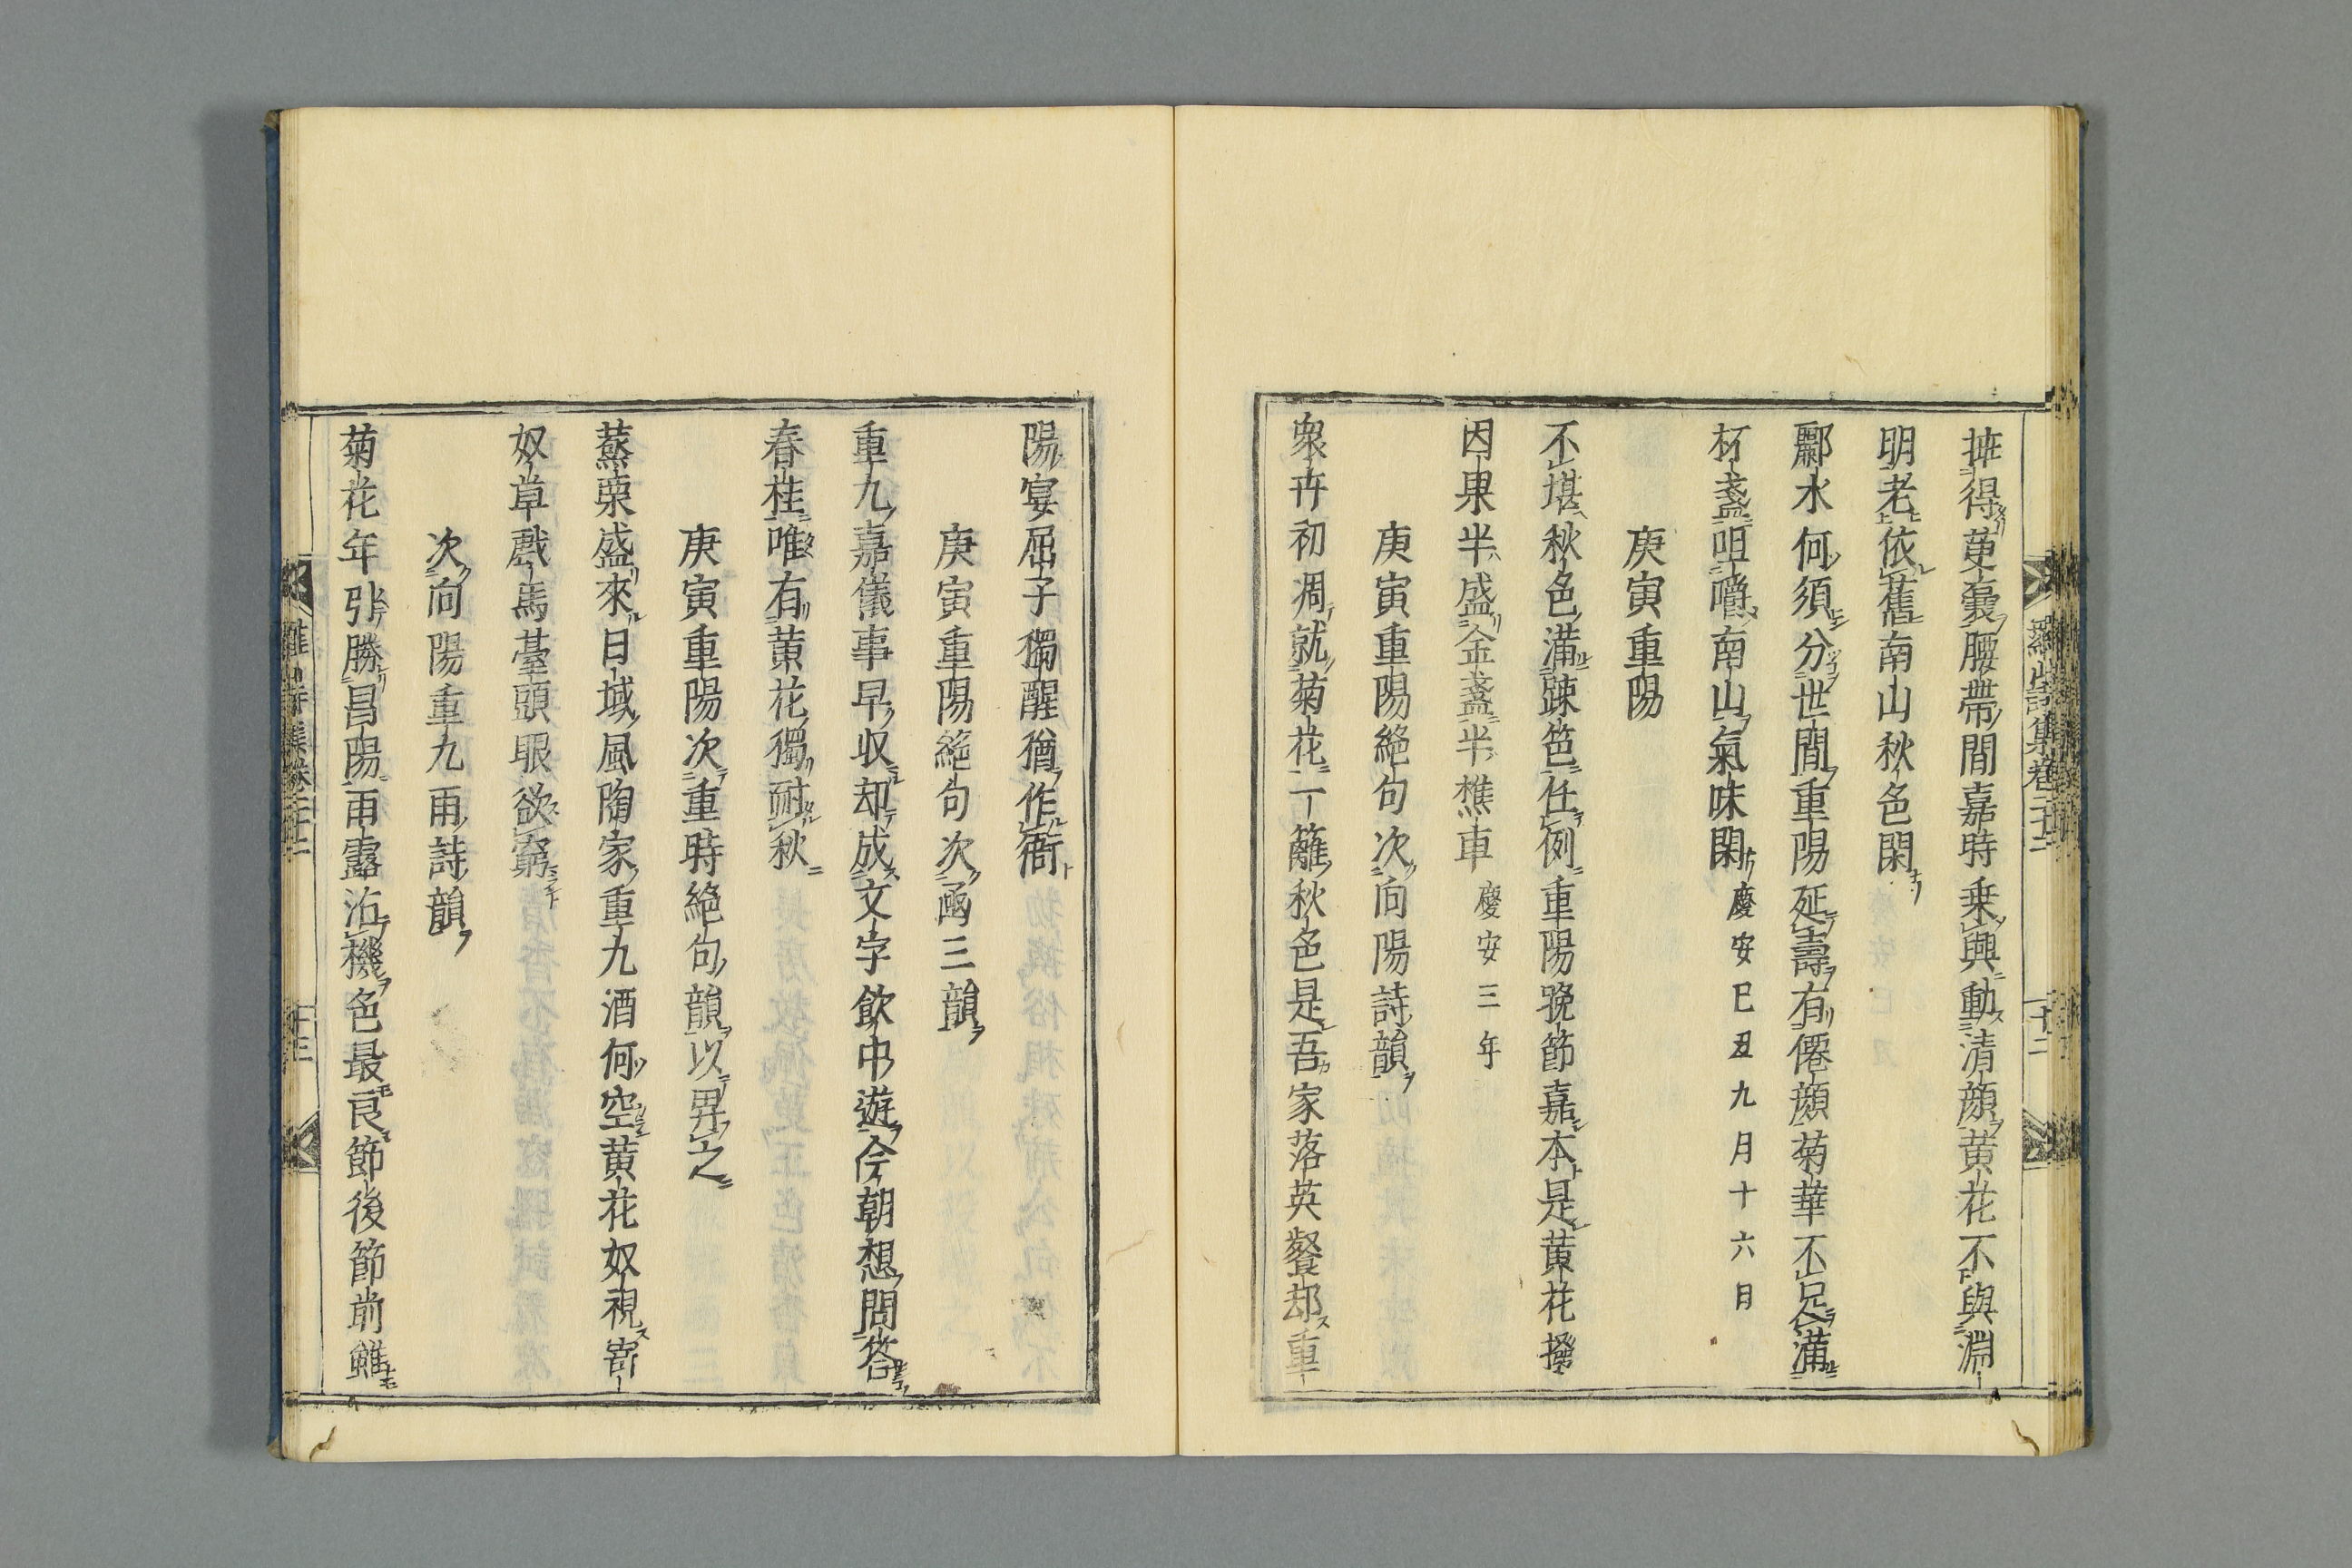 摭得萸嚢腰帶間嘉時乗興動清顔黄花不與淵
明老依舊南山秋色閑
酈水何須分世間重陽延壽有僊顔菊華不足滿
杯盞咀嚼南山氣味閑慶安巳丑九月十六日
庚寅重陽
不堪秋色滿踈笆任例重陽晩節嘉本是黄花撥
因果半盛金盞半樵車慶安三年
庚寅重陽絶句次向陽詩韻
衆卉初凋就菊花一籬秋色是吾家落英餐却重
陽宴屈子獨醒猶作衙
庚寅重陽絶句次函三韻
重九嘉儀事早収却成文字飲中遊今朝想問答
春桂唯有黄花獨耐秋
庚寅重陽次重時絶句韻以畀之
蒸栗盛來日域風陶家重九酒何空黄花奴視嵜
奴草戲馬臺頭眼欲窮
次向陽重九雨詩韻
菊花年引勝昌陽雨露沾機色最良節後節前雖
羅山詩集卷二十二
十二
十三